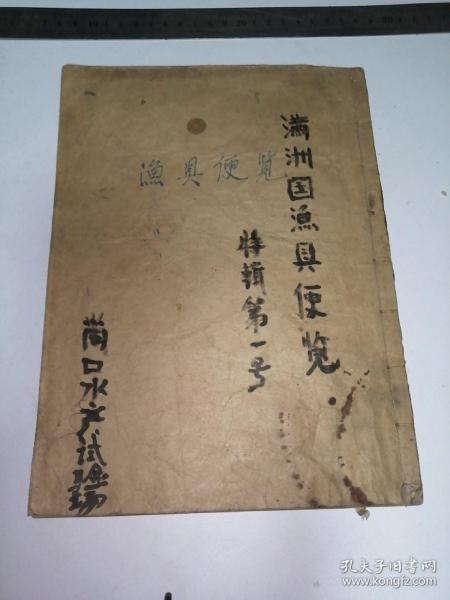 満洲国漁具便览
特輯第一号
漁具便览
営口水产试验场
孔夫子旧书网
www.kongfz.com